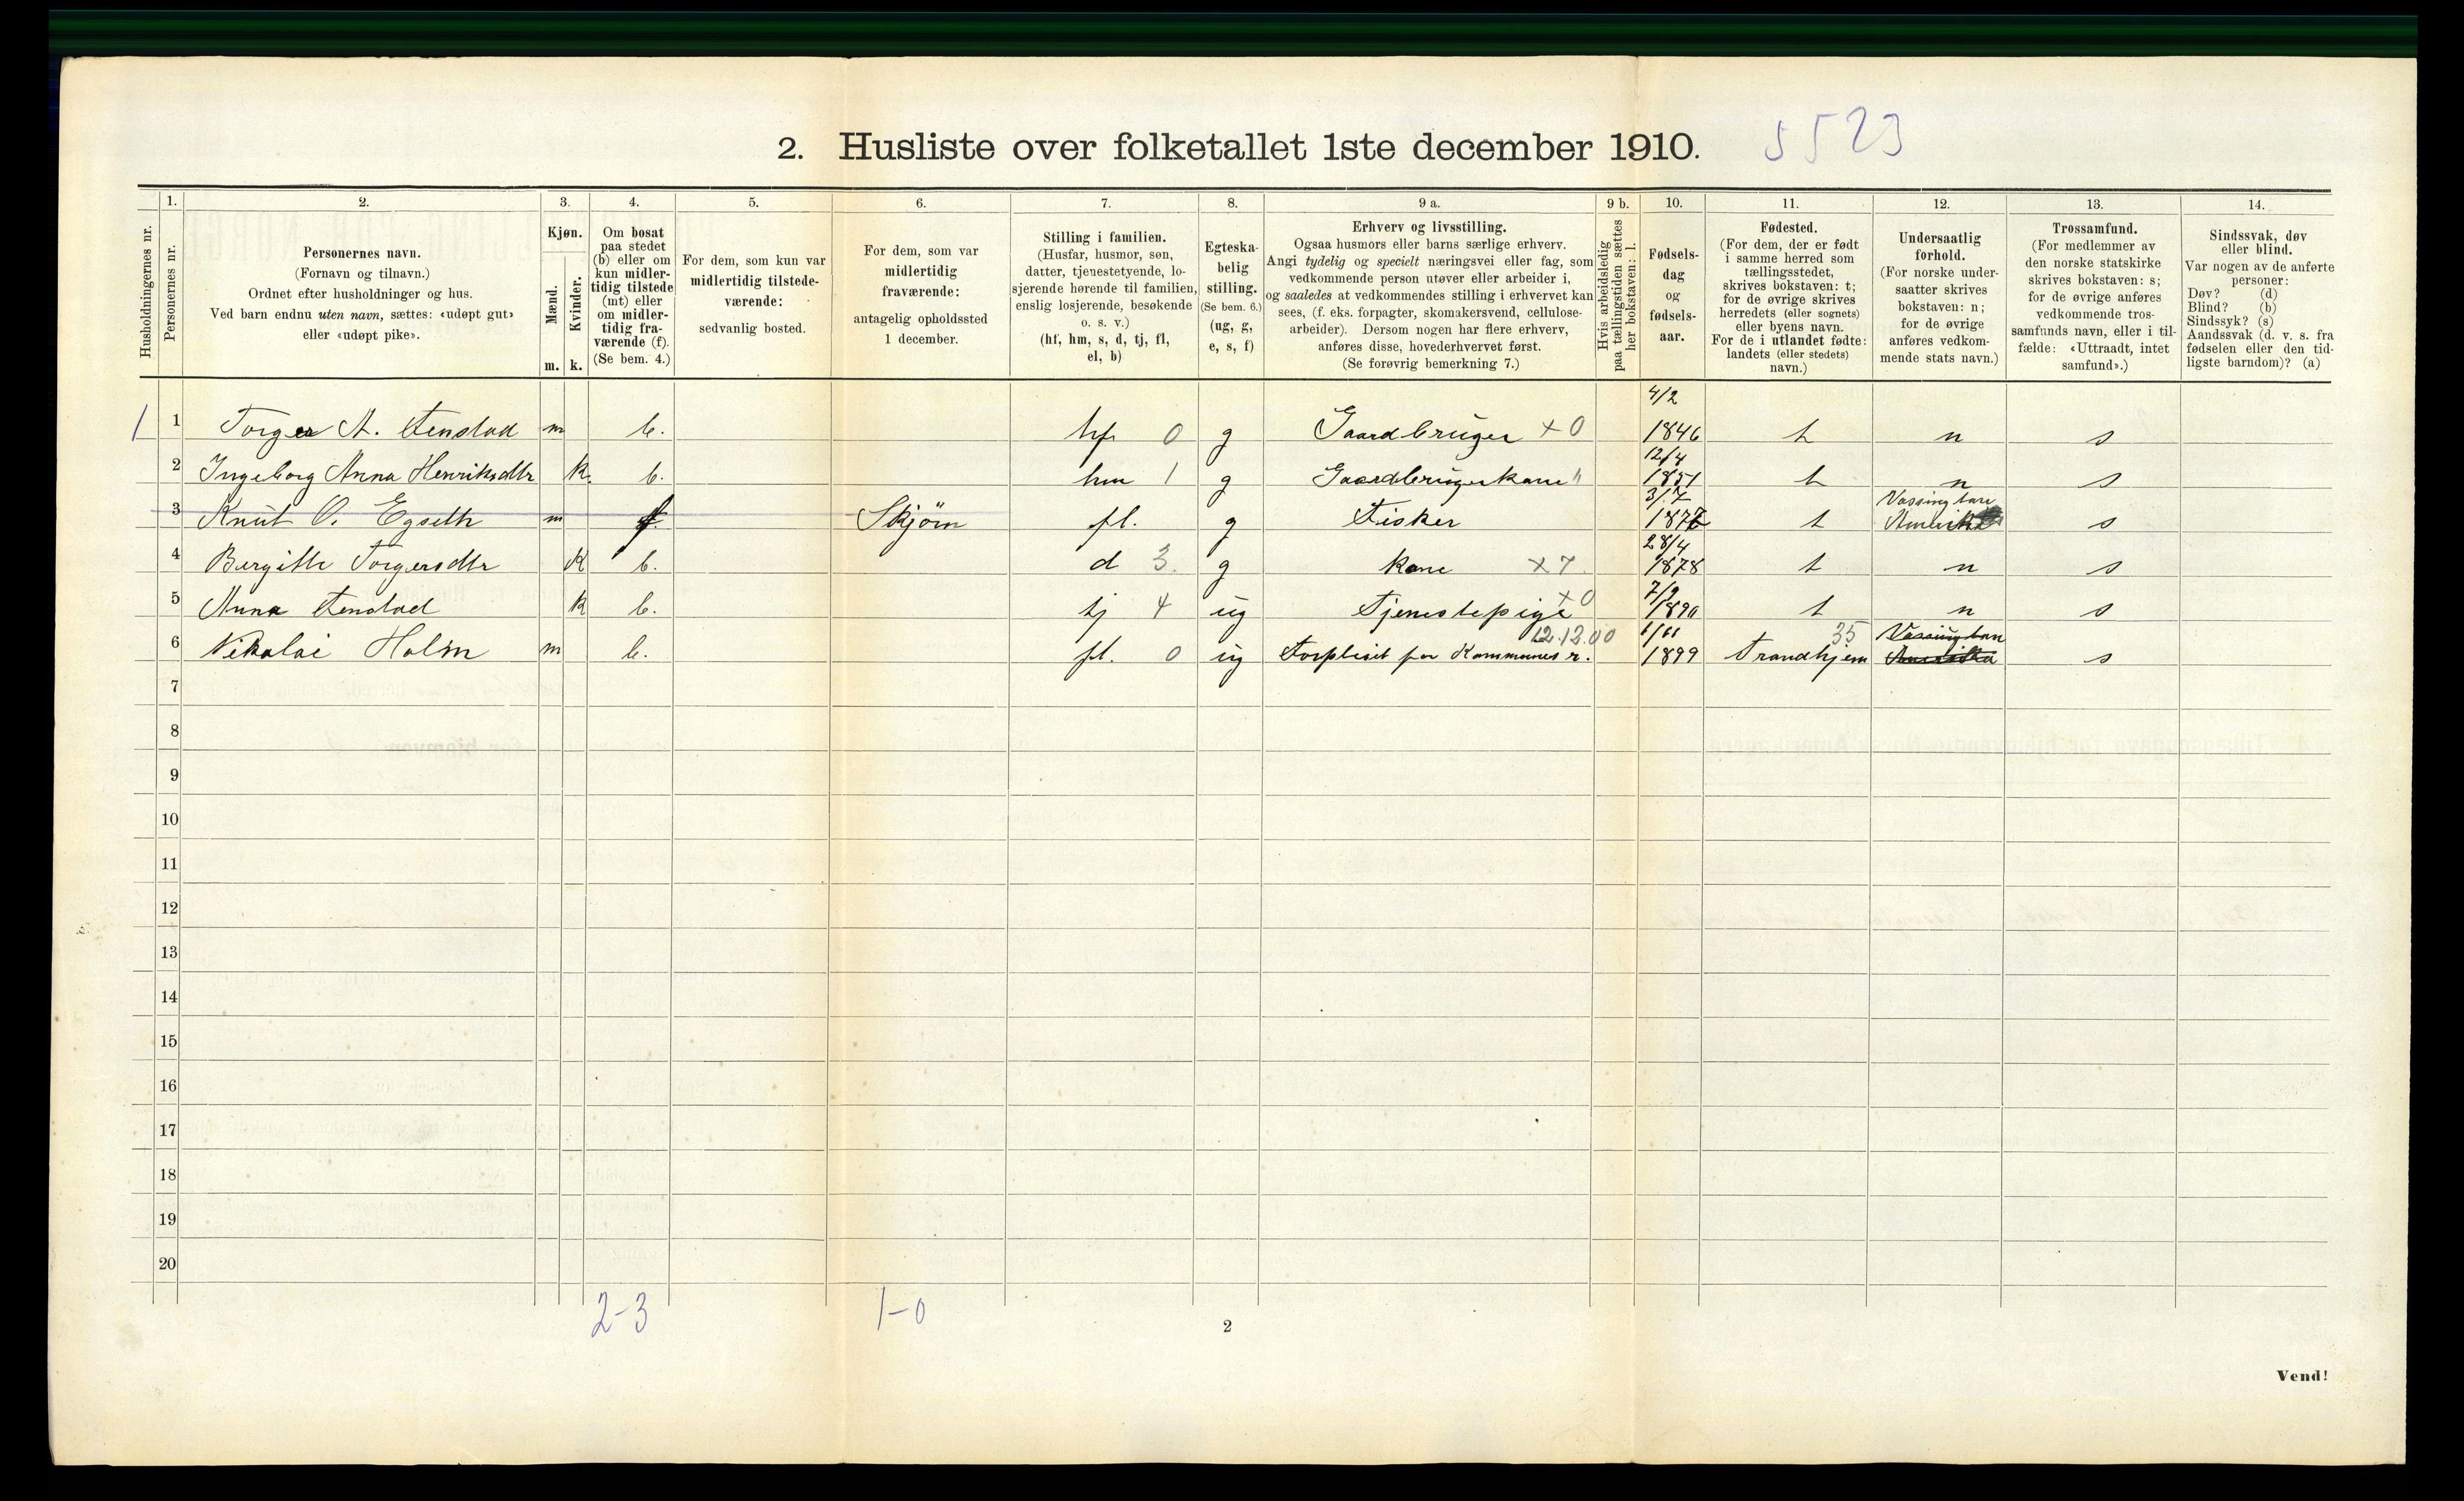 2. Husliste over folketallet 1ste december 1910. 5523
Husholdningernes nr.
1. Personernes nr.
2. Personernes navn.
(Fornavn og tilnavn.)
Ordnet efter husholdninger og hus.
Ved barn endnu uten navn, sættes: «udøpt gut»
eller «udøpt pike».
3. Kjøn.
Mænd. m.
Kvinder. k.
4. Om bosat
paa stedet
(b) eller om
kun midler-
tidig tilstede
(mt) eller
om midler-
tidig fra-
værende (f).
(Se bem. 4.)
5. For dem, som kun var
midlertidig tilstede-
værende:
sedvanlig bosted.
6. For dem, som var
midlertidig
fraværende:
antagelig opholdssted
1 december.
7. Stilling i familien.
(Husfar, husmor, søn,
datter, tjenestetyende, lo-
sjerende hørende til familien,
enslig losjerende, besøkende
o. s. v.)
(hf, hm, s, d, tj, fl,
el, b)
8. Egteska-
belig
stilling.
(Se bem. 6.)
(ug, g,
e, s, f)
9 a. Erhverv og livsstilling.
Ogsaa husmors eller barns særlige erhverv.
Angi tydelig og specielt næringsvei eller fag, som
vedkommende person utøver eller arbeider i,
og saaledes at vedkommendes stilling i erhvervet kan
sees, (f. eks. forpagter, skomakersvend, cellulose-
arbeider). Dersom nogen har flere erhverv,
anføres disse, hovederhvervet først.
(Se forøvrig bemerkning 7.)
9 b. Hvis arbeidsledig
paa tællingstiden sættes
her bokstaven: l.
10. Fødsels-
dag
og
fødsels-
aar.
11. Fødested.
(For dem, der er født
i samme herred som
tællingsstedet,
skrives bokstaven: t;
for de øvrige skrives
herredets (eller sognets)
eller byens navn.
For de i utlandet fødte:
landets (eller stedets)
navn.)
12. Undersaatlig
forhold.
(For norske under-
saatter skrives
bokstaven: n;
for de øvrige
anføres vedkom-
mende stats navn.)
13. Trossamfund.
(For medlemmer av
den norske statskirke
skrives bokstaven: s;
for de øvrige anføres
vedkommende tros-
samfunds navn, eller i til-
fælde: «Uttraadt, intet
samfund».)
14. Sindssvak, døv
eller blind.
Var nogen av de anførte
personer:
Døv? (d)
Blind? (b)
Sindssyk? (s)
Aandssvak (d. v. s. fra
fødselen eller den tid-
ligste barndom)? (a)
1 1 Torger A. Stenstad m b. hf 0 g Gaardbruger +0 4/2 1846 t n s
2 Ingeborg Anna Henriksdtr k. b. hm 1 g Gaardbrugerkone " 12/4 1851 t n s
3 Knut O. Egseth m f. Skjörn fl. g Fisker 3/7 1877 t Vassingtan Amerika s
4 Bergitte Torgersdtr k b. d 3. g kone +7. 28/4 1878 t n s
5 Anna Stenstad k b. tj 4 ug Tjenestepige +0 7/9 1890 t n s
6 Nikolai Holm m b. fl. 0 ug Forpleiet for Kommunes r. 12.12.00 1899 Trondhjem 35 Vassingtan Amerika s
7
8
9
10
11
12
13
14
15
16
17
18
19
20
2-3 1-0
2
Vend!